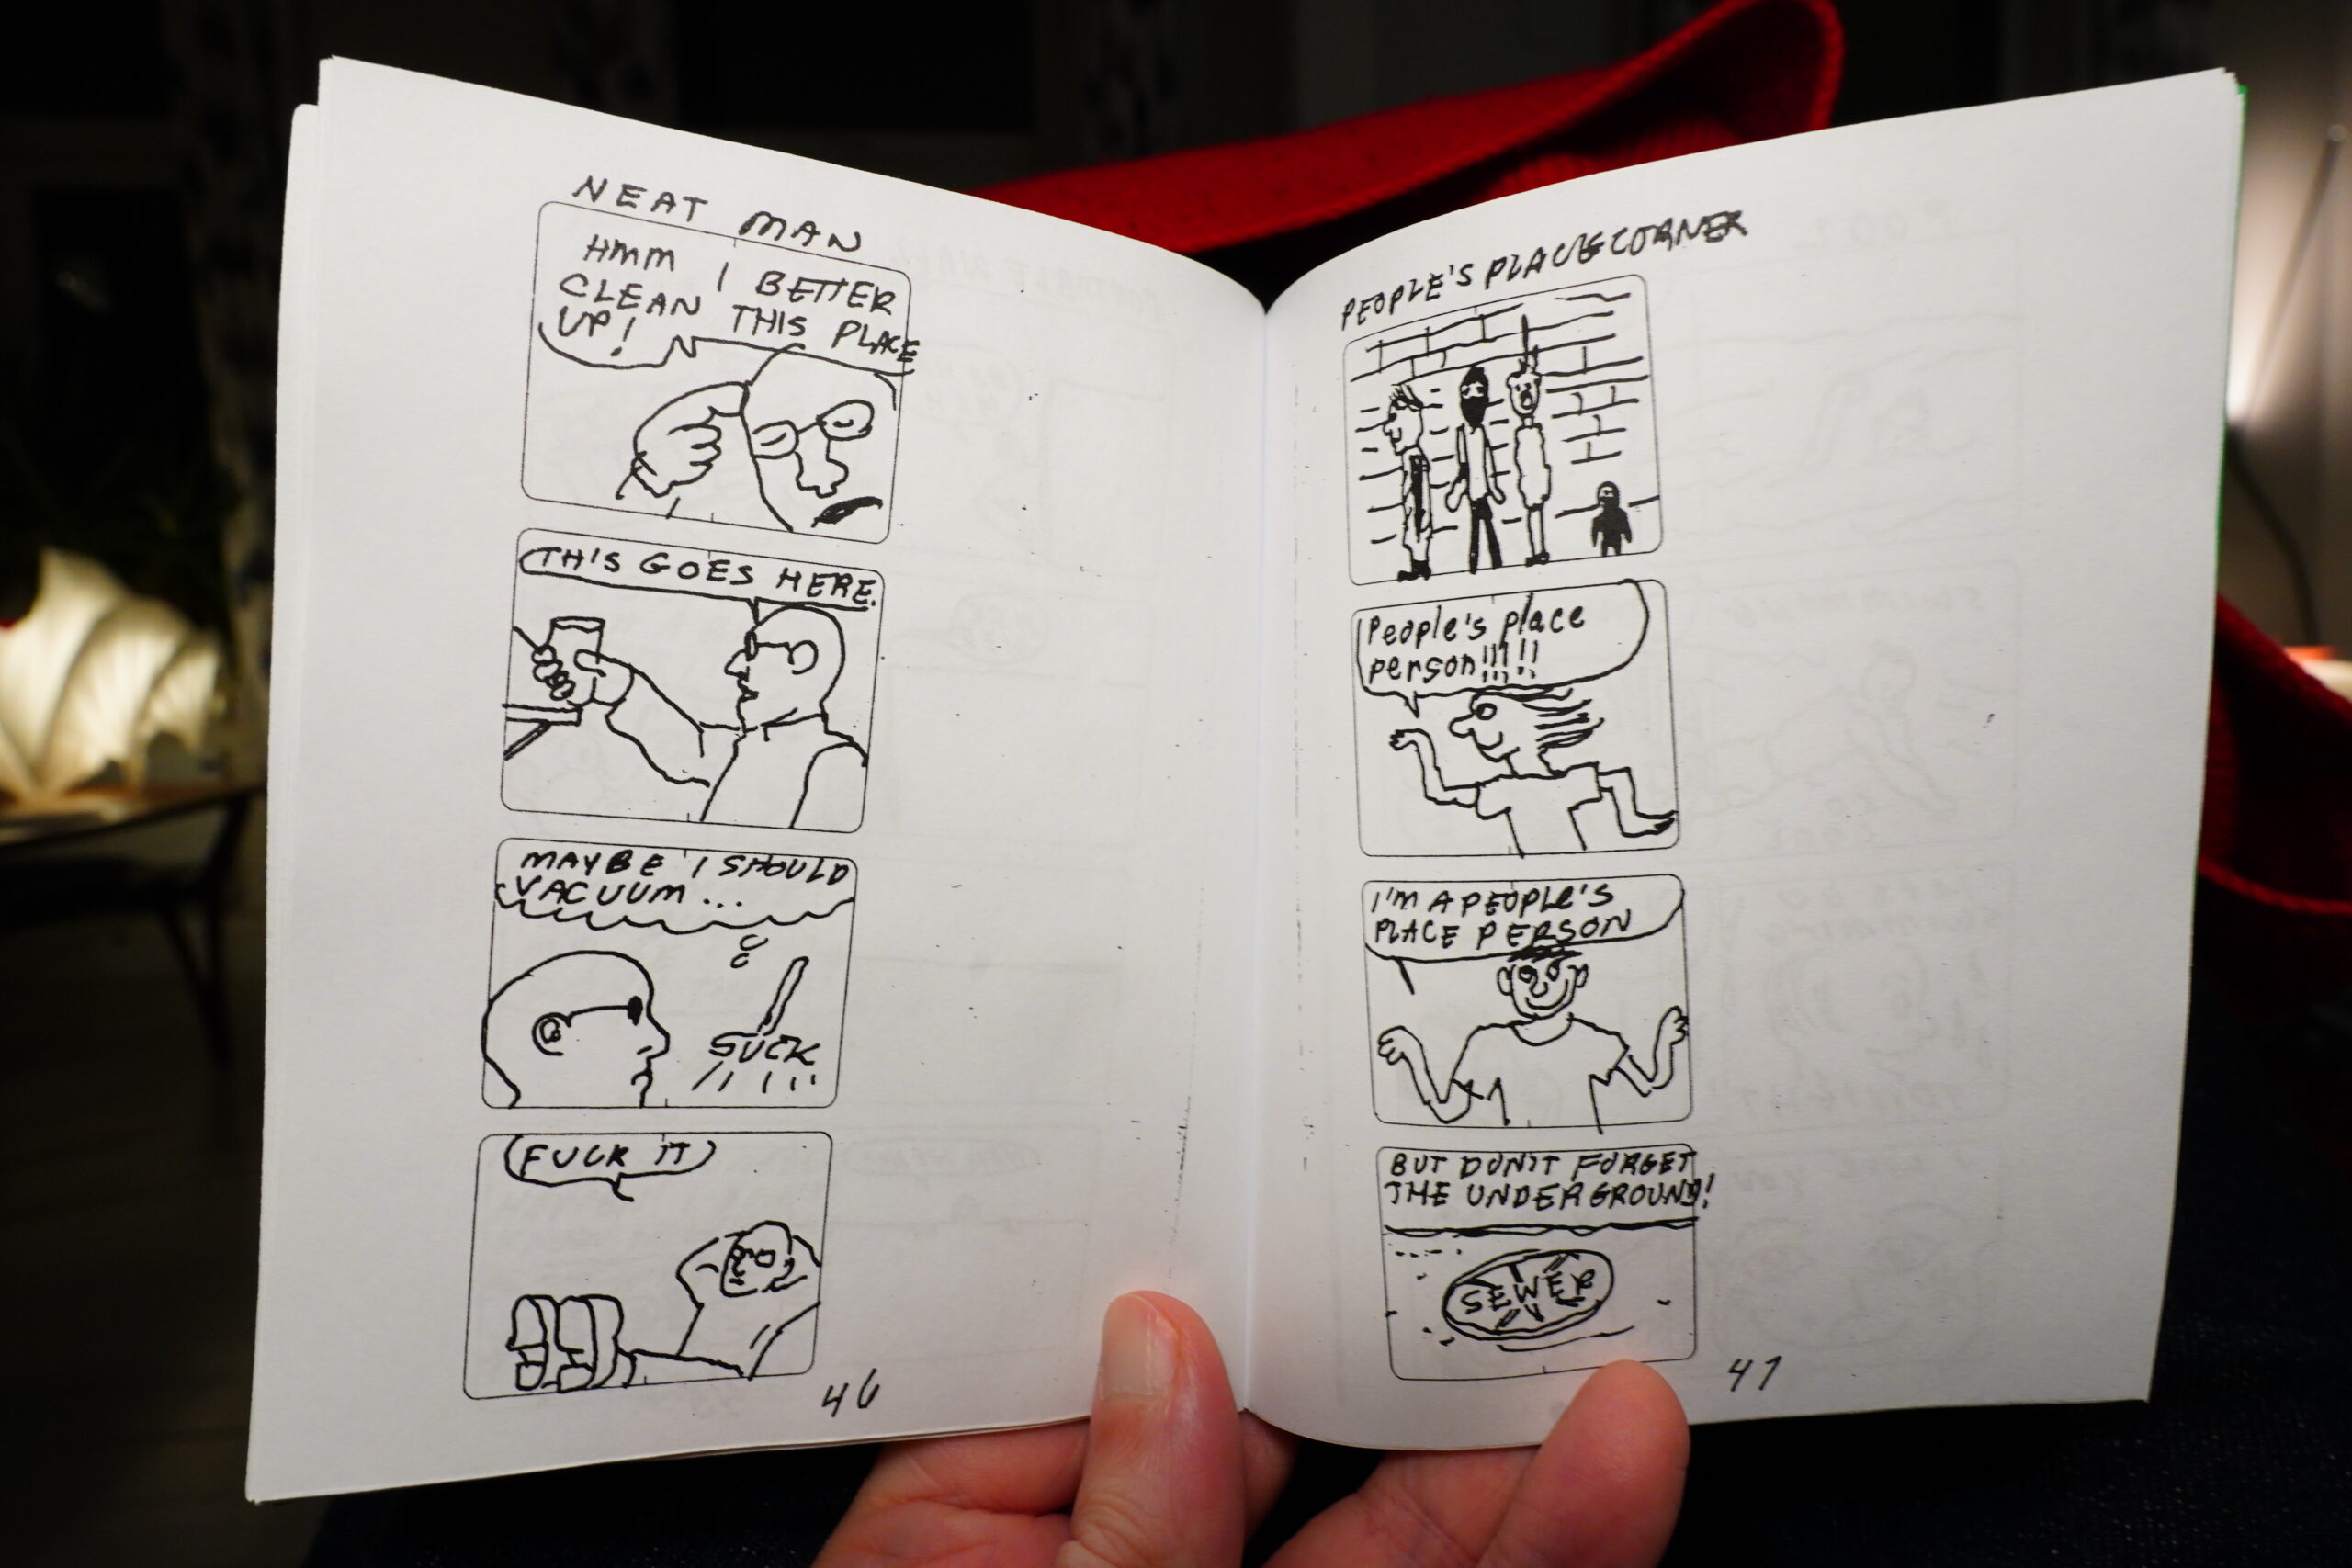 NEAT MAN
HMM I BETTER
CLEAN THIS PLACE
UP!
THIS GOES HERE.
MAYBE I SHOULD
VACUUM...
SUCK
FUCK IT
46
PEOPLE'S PLACE CORNER
People's place
person!!!!!
I'M A PEOPLE'S
PLACE PERSON
BUT DON'T FORGET
THE UNDERGROUND!
SEWER
47